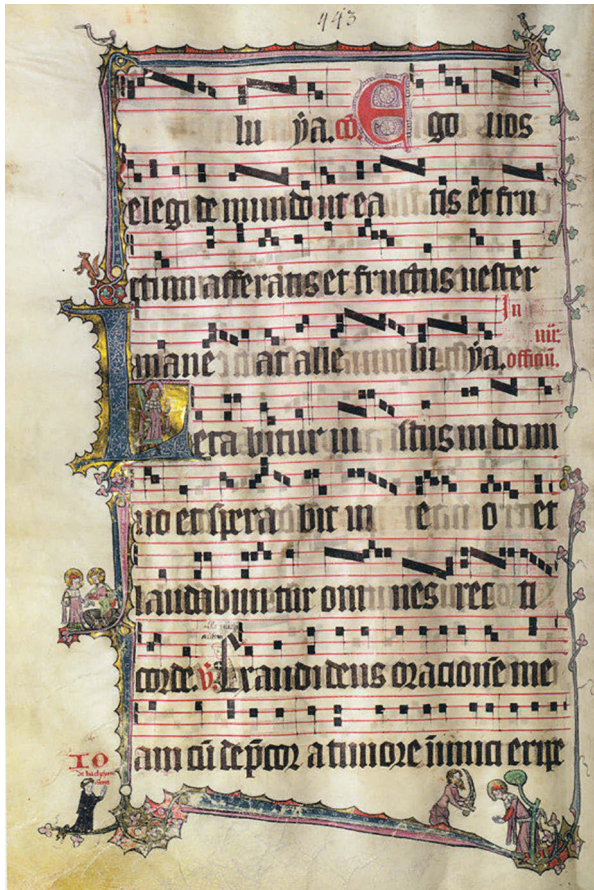 443
lu ya. cō Ego uos
elegi de mundo ut ea tis et fru
ctum afferatis et fructus uester
In
maneat alle lu ya. officiū.
Leta bitur iu stus in do mi
no et spera bit in e o et
laudabun tur om nes rec ti
corde. v̄. Exaudi deus orationē me
am cū dep̄cor a timore inimici eripe
IO